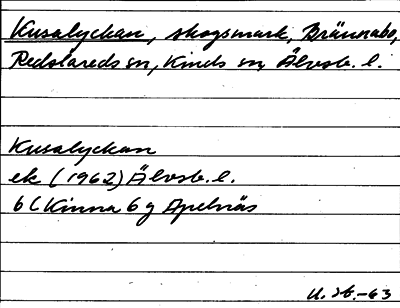 Kusalyckan, skogsmark, Brännabo,
Redslareds sn, Kinds hd, Älvsb. l.
Kusalyckan
ek (1962) Älvsb. l.
6 C Kinna 6 g Apelnäs
-63